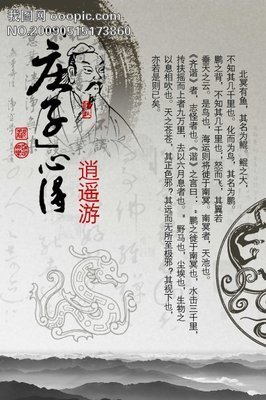 我图网 ooopic.com
NO.20090515173860
北冥有鱼，其名为鲲。鲲之大，
不知其几千里也。化而为鸟，其名为鹏。
鹏之背，不知其几千里也；怒而飞，其翼若
垂天之云。是鸟也，海运则将徙于南冥。南冥者，天池也。
《齐谐》者，志怪者也。《谐》之言曰：“鹏之徙于南冥也，水击三千里，
抟扶摇而上者九万里，去以六月息者也。”野马也，尘埃也，生物之
以息相吹也。天之苍苍，其正色邪？其远而无所至极邪？其视下也，
亦若是则已矣。
逍遥游
庄子心得